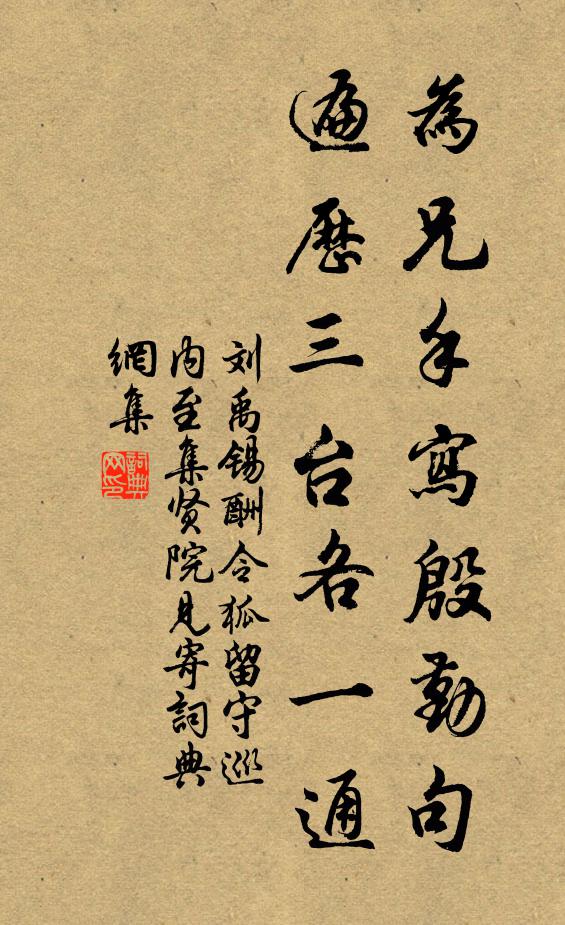 為兄手寫殷勤句
遍歷三台各一通
刘禹锡酬令狐留守巡
内至集贤院見寄詞典
網集
詞典网印